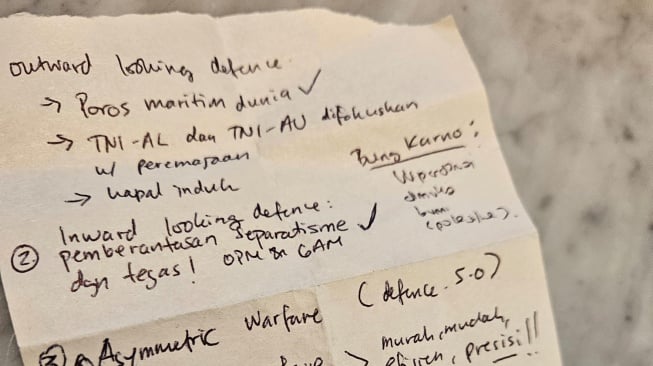 outward looking defence:
→ Poros maritim dunia ✓
→ TNI-AL dan TNI-AU difokuskan
w/ peremajaan
→ kapal induk
Bung Karno:
② Inward looking defence:
pemberantasan separatisme ✓
dgn tegas! OPM & GAM
③ Asymmetric Warfare (defence 5.0)
> murah, mudah,
efisien, presisi!!